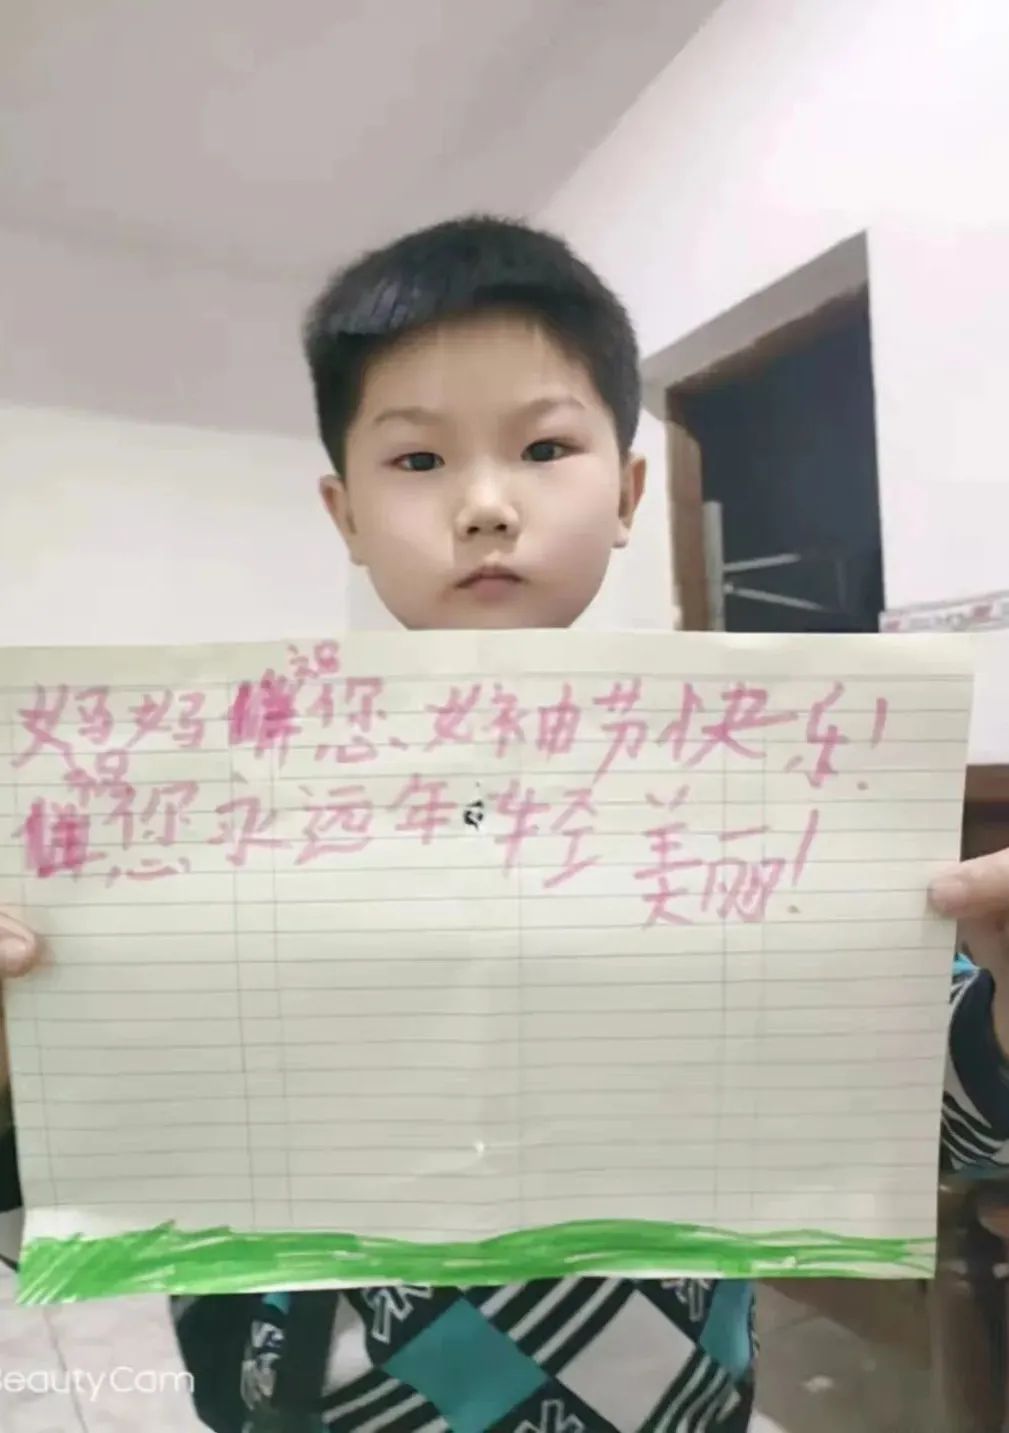 妈妈祝您妇神节快乐!
祝您永远年轻美丽!
BeautyCam